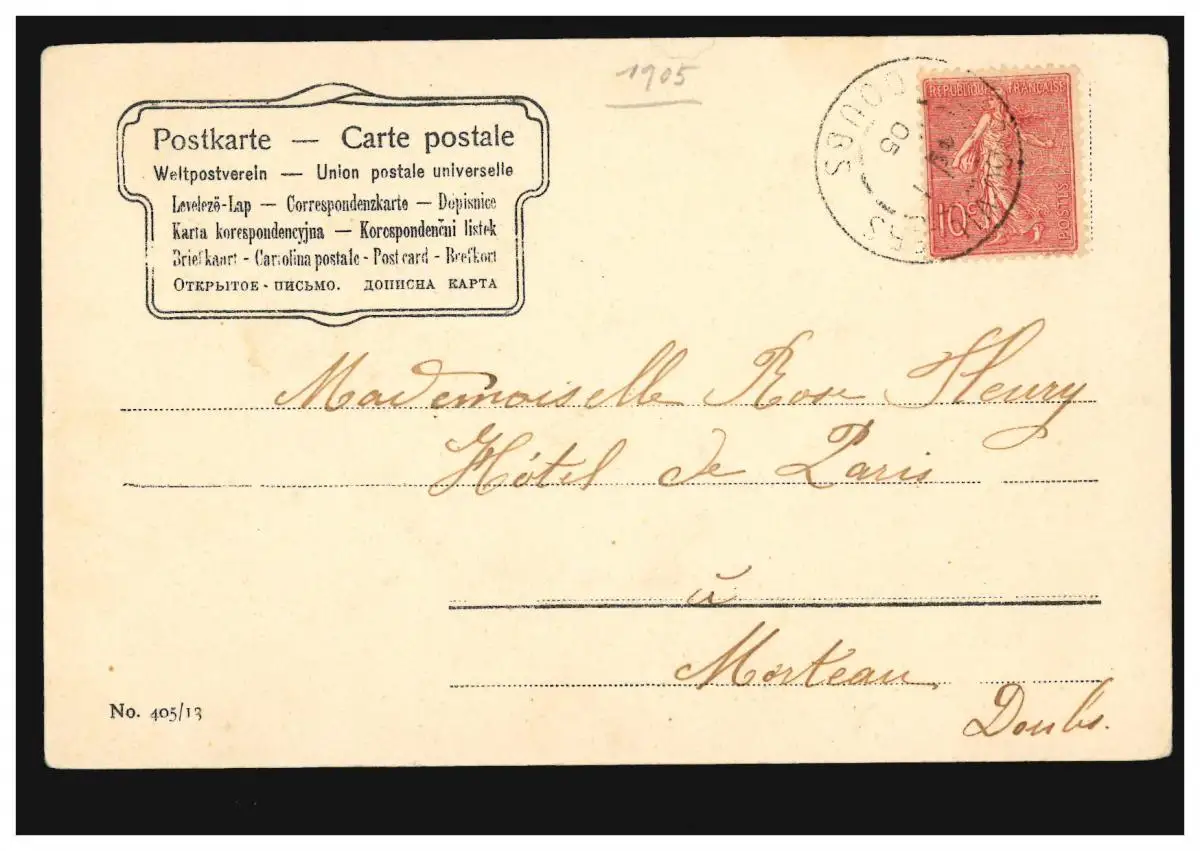 1905
Postkarte — Carte postale
Weltpostverein — Union postale universelle
Levelező-Lap — Correspondenzkarte — Dopisnice
Karta korespondencyjna — Korespondenční listek
Briefkaart - Cartolina postale - Post card - Brefkort
ОТКРЫТОЕ - ПИСЬМО. ДОПИСНА КАРТА
REPUBLIQUE FRANÇAISE
POSTES
10c
DOUBS
05
Mademoiselle Rose Fleury
Hôtel de Paris
à
Morteau
Doubs.
No. 405/13